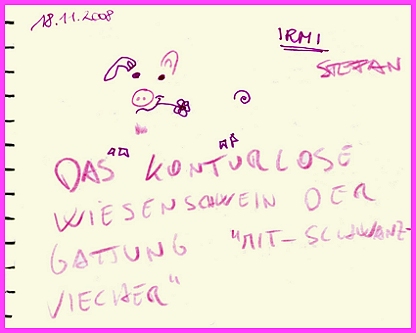 18.11.2008
IRMI
STEFAN
DAS KONTURLOSE
WIESENSCHWEIN DER
GATTUNG "MIT-SCHWANZ-
VIECHER"